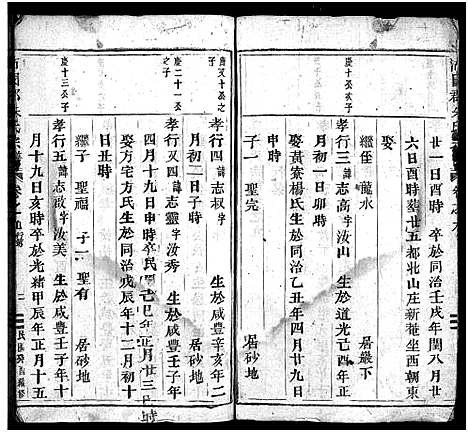 廿一日酉時卒於同治壬戌年閏八月廿
六日酉時葬廿五都北山庄新菴坐西朝東
娶
繼侄 龍水 居嚴下
孝行三諱志高字汝山 生於道光己酉年正
月初一日卯時
娶黃寮楊氏生於同治乙丑年四月廿九日
子一 聖完 居砂地
慶又十公之子
孝行又四諱志叔字 生於咸豐辛亥年二
月初二日子時 居砂地
慶二十一公之子
孝行又四諱志靈字汝秀 生於咸豐壬子年
四月十九日申時卒民國己巳年正月廿三巳時
娶方宅方氏生於同治戊辰年十二月初十
繼子 聖福 子二 聖有 居砂地
慶十三公次子
孝行五諱志政字汝美 生於咸豐壬子年十
月十九日亥時卒於光緒甲辰年正月十五